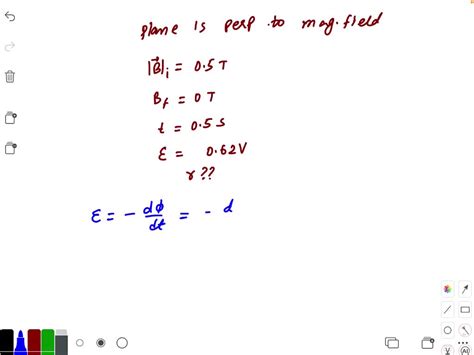 plane is perp to mag. field
|B⃗|ᵢ = 0.5 T
B_f = 0 T
t = 0.5 s
ε = 0.62 V
r ??
ε = − dϕ/dt = − d